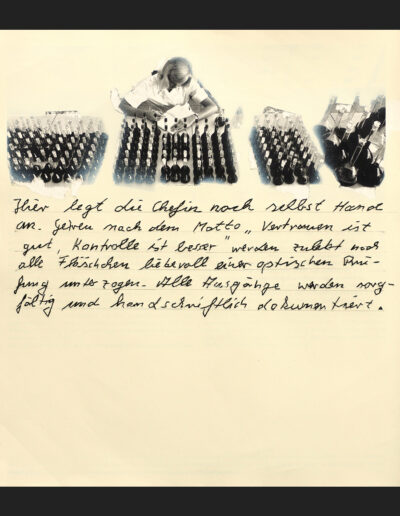 Hier legt die Chefin noch selbst Hand
an. Getreu nach dem Motto „Vertrauen ist
gut, Kontrolle ist besser" werden zuletzt noch
alle Fläschchen liebevoll einer optischen Prü-
fung unterzogen. Alle Ausgänge werden sorg-
fältig und handschriftlich dokumentiert.